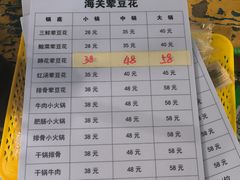 海关荤豆花
锅底 小锅 中锅 大锅
三鲜荤豆花 28元 35元 40元
酸菜荤豆花 28元 35元 40元
蹄花荤豆花 38 48 58
红汤荤豆花 35元 40元 45元
排骨荤豆花 38元 48元 58元
牛肉小火锅 38元 48元 58元
肥肠小火锅 38元 48元 58元
排骨小火锅 38元 48元 58元
干锅排骨 38元 48元 58元
干锅牛肉 38元 48元 58元